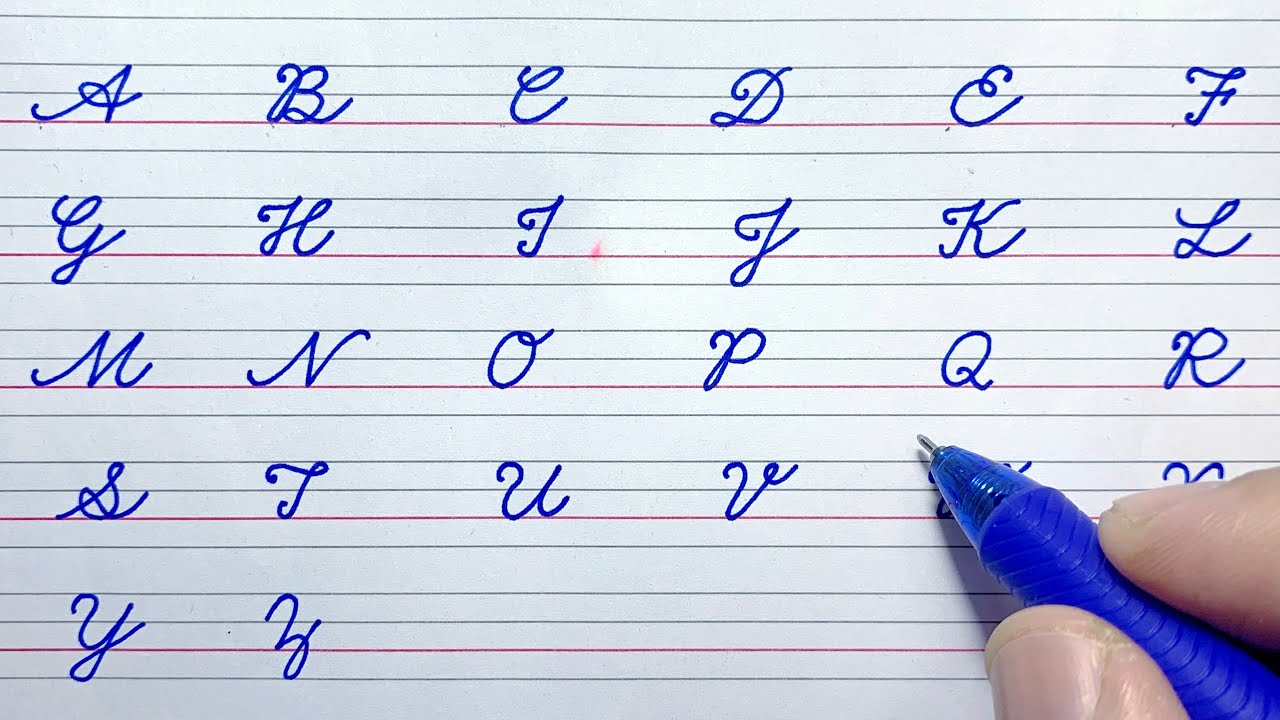 A B C D E F
G H I J K L
M N O P Q R
S T U V
Y Z